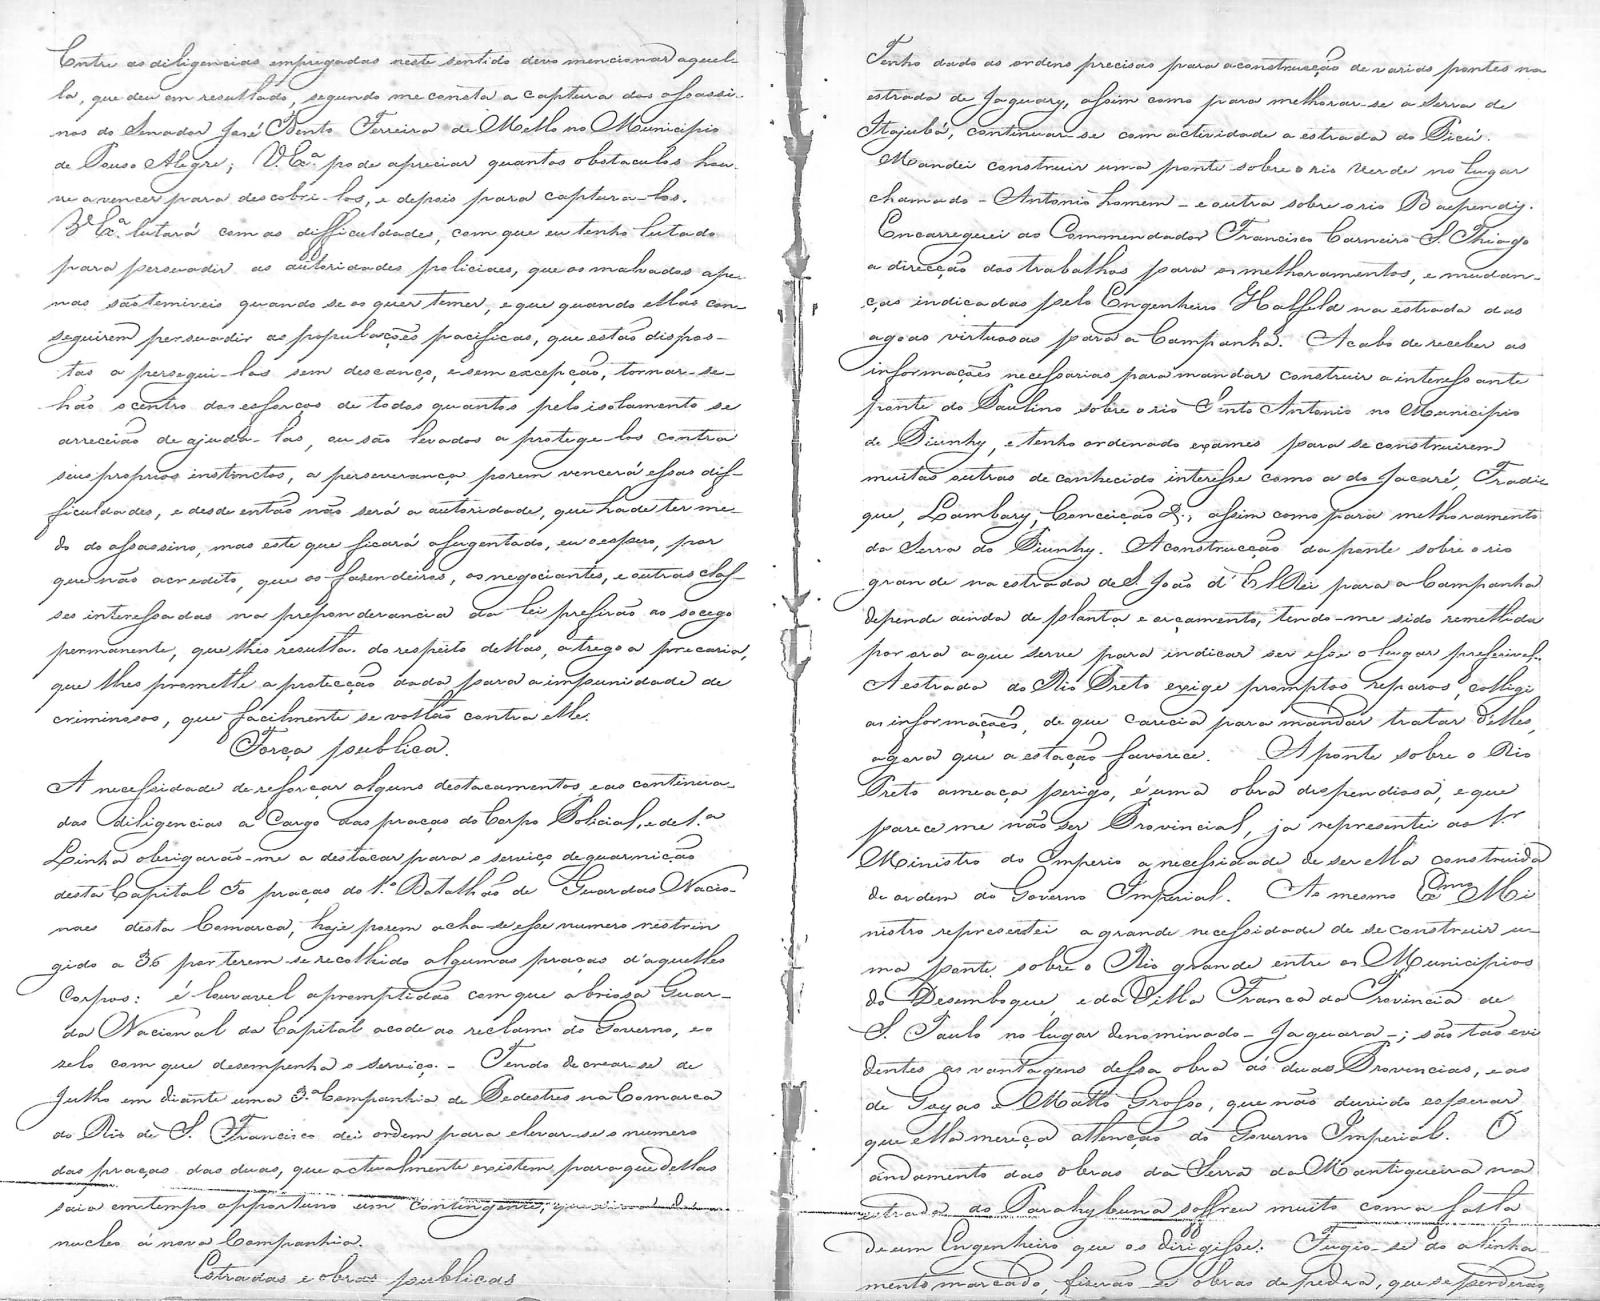 Entre as diligencias empregadas neste sentido devo mencionar aquel-
la, que deu em resultado, segundo me consta a captura dos assassi-
nos do Senador José Bento Ferreira de Mello no Municipio
de Pouso Alegre; V. Exª pode apreciar quantos obstaculos hou-
ve a vencer para descobri-los, e depois para captura-los.
V Exª. lutará com as difficuldades, com que eu tenho lutado
para persuadir as autoridades policiaes, que os malvados ape-
nas são temiveis quando se os quer temer, e que quando ellas con-
seguirem persuadir as populações pacificas, que estão dispos-
tas a persegui-los sem descanço, e sem excepção, tornar-se-
hão o centro dos esforços de todos quantos pelo isolamento se
arreceião de ajuda-las, ou são levados a protege-los contra
seus proprios instinctos, a perseverança porem vencerá essas dif-
ficuldades, e desde então não será a autoridade, que hade ter me-
do do assassino, mas este que ficará afugentado, eu o espero, por
que não acredito, que os fasendeiros, os negociantes, e outras clas-
ses interessadas na preponderancia da lei prefirão ao socego
permanente, que lhes resulta do respeito dellas, a tregoa precaria,
que lhes promette a protecção dada para a impunidade de
criminosos, que facilmente se voltão contra elle.
Força publica.
A necessidade de reforçar alguns destacamentos, e as continua-
das diligencias a Cargo das praças do Corpo Policial, e de 1.ª
Linha obrigarão-me a destacar para o serviço de guarnição
desta Capital 50 praças do 1.º Batalhão de Guardas Nacio-
naes desta Comarca, hoje porem acha-se esse numero restrin
gido a 36 por terem-se recolhido algumas praças d'aquelles
Corpos: é louvavel a promptidão com que a briosa Guar-
da Nacional da Capital acode ao reclamo do Governo, e o
zelo com que desempenha o serviço. - Tendo de crear-se de
Julho em diante uma 3.ª Companhia de Pedestres na Comarca
do Rio de S. Francisco dei ordem para elevar-se o numero
das praças das duas, que actualmente existem para que dellas
saia em tempo opportuno um contingente,
nucleo á nova Companhia.
Estradas e obras publicas
Tenho dado as ordens precisas para a construcção de varias pontes na
estrada de Jaguary, assim como para melhorar-se a Serra de
Itajubá, continuar-se com actividade a estrada do Picú.
Mandei construir uma ponte sobre o rio Verde no lugar
chamado - Antonio homem - e outra sobre o rio Baependy.
Encarreguei ao Commendador Francisco Carneiro S. Thiago
a direcção dos trabalhos para os melhoramentos, e mudan-
ças indicadas pelo Engenheiro Halfeld na estrada das
agoas virtuosas para a Campanha. Acabo de receber as
informações necessarias para mandar construir a interessante
ponte do Paulino sobre o rio Santo Antonio no Municipio
de Piunhy, e tenho ordenado exames para se construirem
muitas outras de conhecido interesse como a do Jacaré,
que, Lambary, Conceição &; assim como para melhoramento
da Serra do Piunhy. A construcção da ponte sobre o rio
grande na estrada de S. João d' ElRei para a Campanha
depende ainda de planta e orçamento, tendo-me sido remettida
por ora a que serve para indicar ser esse o lugar preferivel.
A estrada do Rio Preto exige promptos reparos, colligi
as informações, de que carecia para mandar tratar d'elles,
agora que a estação favorece. A ponte sobre o Rio
Preto ameaça perigo, é uma obra dispendiosa, e que
parece me não ser Provincial, ja representei ao
Ministro do Imperio a necessidade de ser ella construida
de ordem do Governo Imperial. Ao mesmo Exmo Mi
nistro representei a grande necessidade de se construir u-
ma ponte sobre o Rio grande entre os Municipios
do Desemboque, e da Villa Franca da Provincia de
S. Paulo no lugar denominado - Jaguara -; são tão evi
dentes as vantagens dessa obra ás duas Provincias, e as
de Goyas e Matto Grosso, que não duvido esperar
que ella mereça attenção do Governo Imperial. O
andamento das obras da Serra da Mantiqueira na
estrada do Parahybuna soffreu muito com a falta
de um Engenheiro que os dirigisse. Fugio-se do alinha-
mento marcado, fiserão-se obras de pedra, que se perderão,